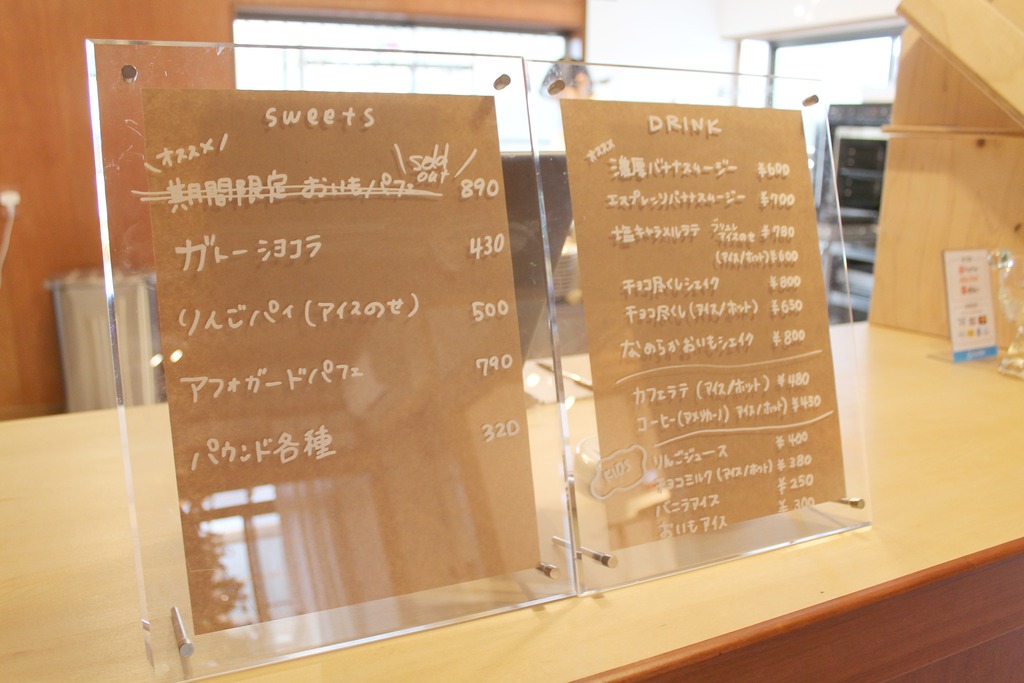 sweets
オススメ
sold
out
期間限定 おいもパフェ 890
ガトーショコラ 430
りんごパイ(アイスのせ) 500
アフォガードパフェ 790
パウンド各種 320
DRINK
オススメ
濃厚バナナスムージー ¥600
エスプレッソバナナスムージー ¥700
塩キャラメルラテ ブリュレアイスのせ ¥780
(アイス/ホット) ¥600
チョコ尽くしシェイク ¥800
チョコ尽くし(アイス/ホット) ¥650
なめらかおいもシェイク ¥800
カフェラテ (アイス/ホット) ¥480
コーヒー(アメリカーノ) アイス/ホット) ¥430
KIDS
りんごジュース ¥400
チョコミルク(アイス/ホット) ¥380
バニラアイス ¥250
おいもアイス ¥300